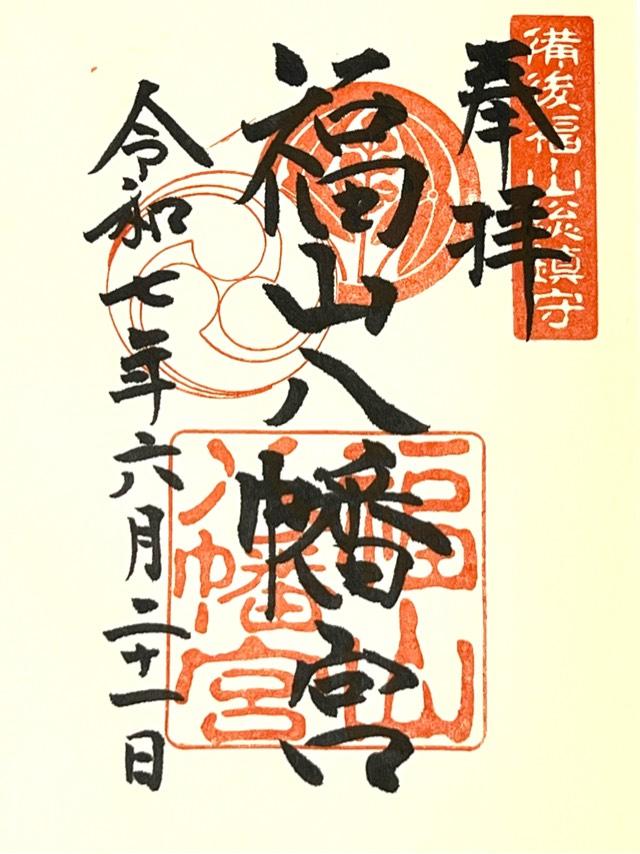 備後福山総鎮守
奉拝
福山八幡宮
福山八幡宮
令和七年六月二十一日